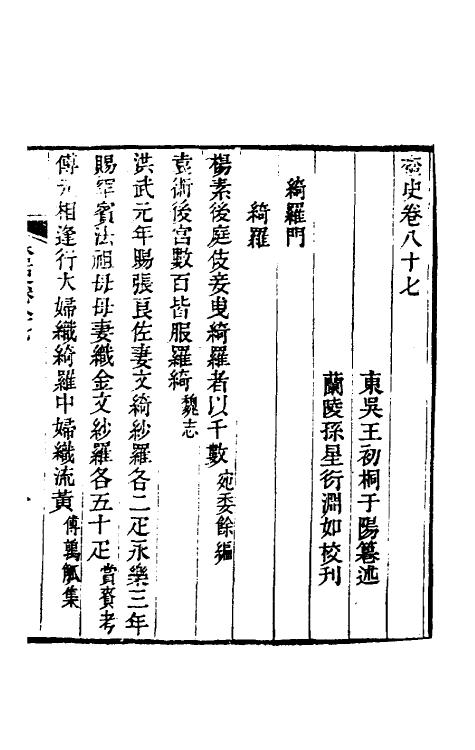 奩史卷八十七
東吳王初桐于陽纂述
蘭陵孫星衍淵如校刊
綺羅門
綺羅
楊素後庭伎妾曳綺羅者以千數宛委餘編
袁術後宮數百皆服羅綺魏志
洪武元年賜張良佐妻文綺紗羅各二疋永樂三年
賜罕賓法祖母母妻織金文紗羅各五十疋賞賚考
傅玄相逢行大婦織綺羅中婦織流黃傅鶉觚集